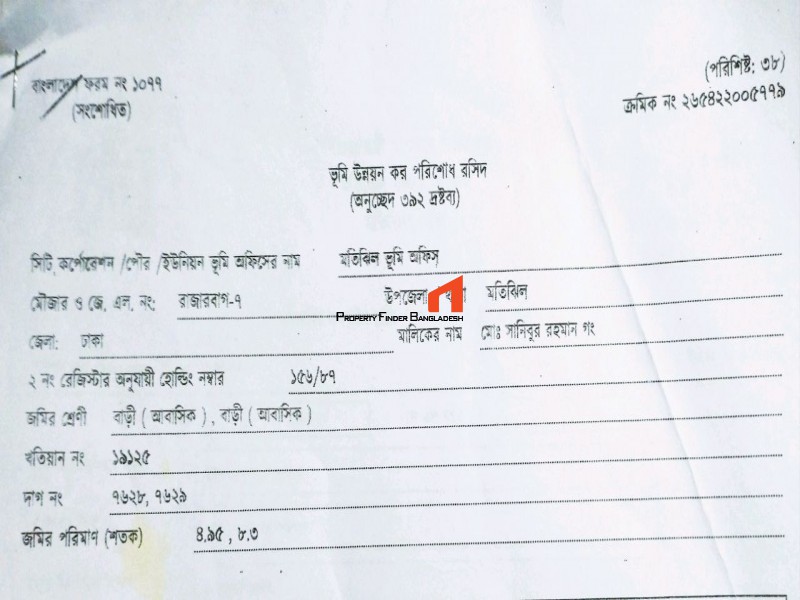 বাংলাদেশ ফরম নং ১০৭৭
(সংশোধিত)
(পরিশিষ্ট: ৩৮)
ক্রমিক নং ২৬৫৪২২০০৫৭৭৯
ভূমি উন্নয়ন কর পরিশোধ রসিদ
(অনুচ্ছেদ ৩৯২ দ্রষ্টব্য)
সিটি কর্পোরেশন /পৌর /ইউনিয়ন ভূমি অফিসের নাম মতিঝিল ভূমি অফিস
মৌজার ও জে, এল, নং: রাজারবাগ-৭ উপজেলা মতিঝিল
PROPERTY FINDER BANGLADESH
জেলা: ঢাকা মালিকের নাম মোঃ সানিবুর রহমান গং
২ নং রেজিস্টার অনুযায়ী হোল্ডিং নম্বার ১৫৬/৮৭
জমির শ্রেণী বাড়ী ( আবাসিক ) , বাড়ী ( আবাসিক )
খতিয়ান নং ১৯১২৫
দাগ নং ৭৬২৮, ৭৬২৯
জমির পরিমাণ (শতক) ৪.৯৫ , ৮.৩